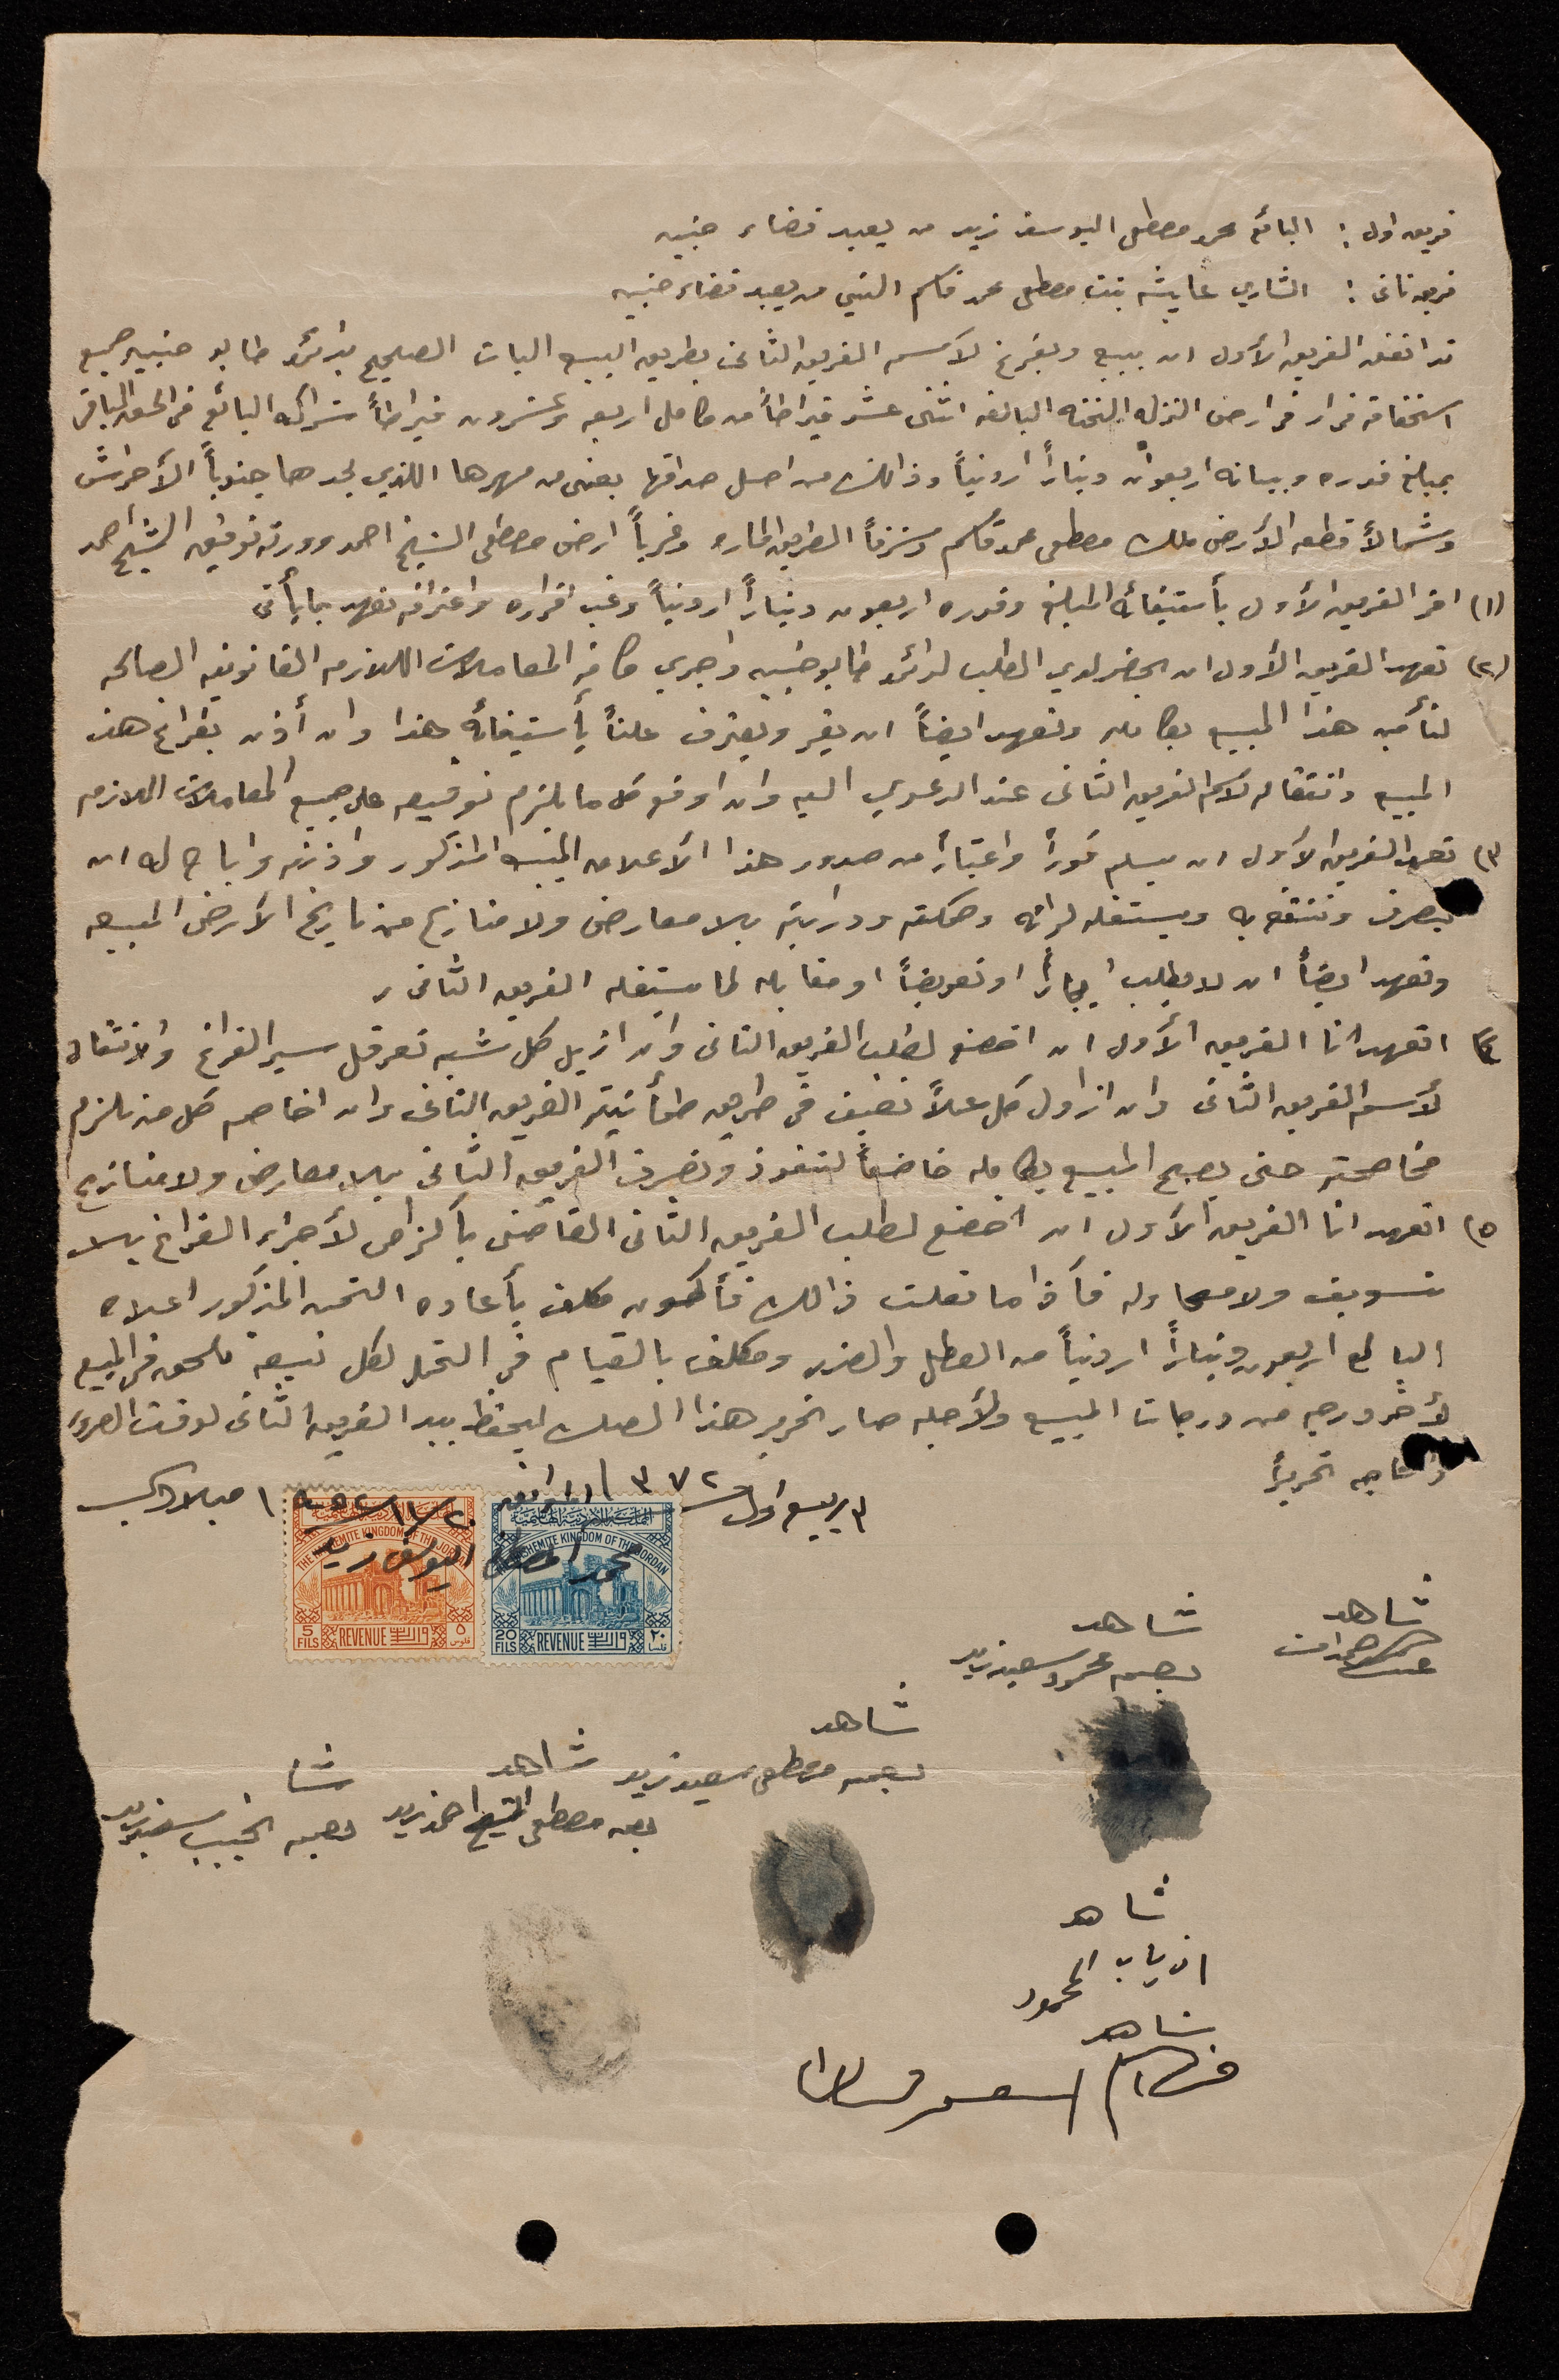 فريق اول : البائع محمد مصطفى اليوسف زيد من يعبد قضاء جنين
فريق ثاني : الشاري عايشه بنت مصطفى محمد قاسم التي من يعبد قضاء جنين
قد اتفق الفريق الأول ان يبيع ويفرغ لاسم الفريق الثاني بطريق البيع البات الصحيح بدائرة طابو جنين جميع
استحقاقه في ارض النزله التحته البالغه اثنى عشر قيراطاً من كامل اربعه وعشرون قيراطاً شراكه البائع في الحق الباقي
بمبلغ قدره وبيانه اربعون ديناراً اردنياً وذالك من اصل صداقها يعني من مهرها اللذي يحدها جنوباً الأحراش
وشمالاً قطعه الأرض ملك مصطفى محمد قاسم وشرقاً الطريق الماره وغرباً ارض مصطفى الشيخ احمد وورثة توفيق الشيخ احمد
(١) اقر الفريق الأول بأستيفائه المبلغ وقدره اربعون ديناراً اردنياً وغب اقراره واعترافه تعهد بما يأتي
(٢) تعهد الفريق الأول ان احضر لدي الطلب لدائرة طابو جنين واجري كافة المعاملات اللازمه القانونيه الصالحه
لتأمين هذا المبيع بكامله وتعهد ايضاً ان يقر ويعترف علناً بأستيفائه هذا وان أذن بفراغ هذا
المبيع وانتقاله لاسم الفريق الثاني عند الدعوي اليه وان اوقع كل ما يلزم توقيعه على جميع المعاملات اللازمه
٣) تعهد الفريق الأول ان يسلم فوراً واعتباراً من صدور هذا الأعلام المبيع المذكور واذنته واباح له ان
يتصرف وينتفع به ويستغله لذاته وحكمته ودرايته بلا معارض ولا منازع من تاريخ الأرض المبيعه
وتعهد ايضاً ان لا يطلب ايجاراً او تعويضاً او مقابله لما يستغله الفريق الثاني
٤) اتعهد انا الفريق الأول ان اخضع لطلب الفريق الثاني وان ازيل كل شبه تعرقل سير الفراغ والانتقال
لأسم الفريق الثاني وان ازاول كل عملاً في طريق طمأنينة الفريق الثاني وان اخاصم كل من يلزم
مخاصمته حتى يصبح المبيع بكامله خاضعاً لنفوذ وتصرف الفريق الثاني بلا معارض ولا منازع
٥) اتعهد انا الفريق الأول ان اخضع لطلب الفريق الثاني القاضي بألزامي لأجراء الفراغ بلا
تسويف ولا محاوله فأذا ما فعلت ذالك فأكون مكلف بأعادة الثمن المذكور اعلاه
البالغ اربعون ديناراً اردنياً مع العطل والضرر ومكلف بالقيام في التحمل لكل تبعه تلحق في المبيع
لأخر درجه من درجات المبيع ولأجله صار تحرير هذا الصك ليحفظ بيد الفريق الثاني لوقت الضرورة
والحاجه تحريراً
٣ ربيع اول سنة ١٣٧٢ الموافق ٢٠/١١/١٩٥٢ ميلادي
محمد مصطفى اليوسف زيد
المملكة الأردنية الهاشمية
THE HASHEMITE KINGDOM OF THE JORDAN
5 FILS REVENUE واردات ٥ فلوس
المملكة الأردنية الهاشمية
THE HASHEMITE KINGDOM OF THE JORDAN
20 FILS REVENUE واردات ٢٠ فلسا
شاهد
شاهد
بصمه محمود سعيد زيد
شاهد
بصمه مصطفى سعيد زيد
شاهد
بصمه مصطفى الشيخ احمد زيد
شا
بصمه سعيد زيد
شاهد
اذياب المحمود
شاهد